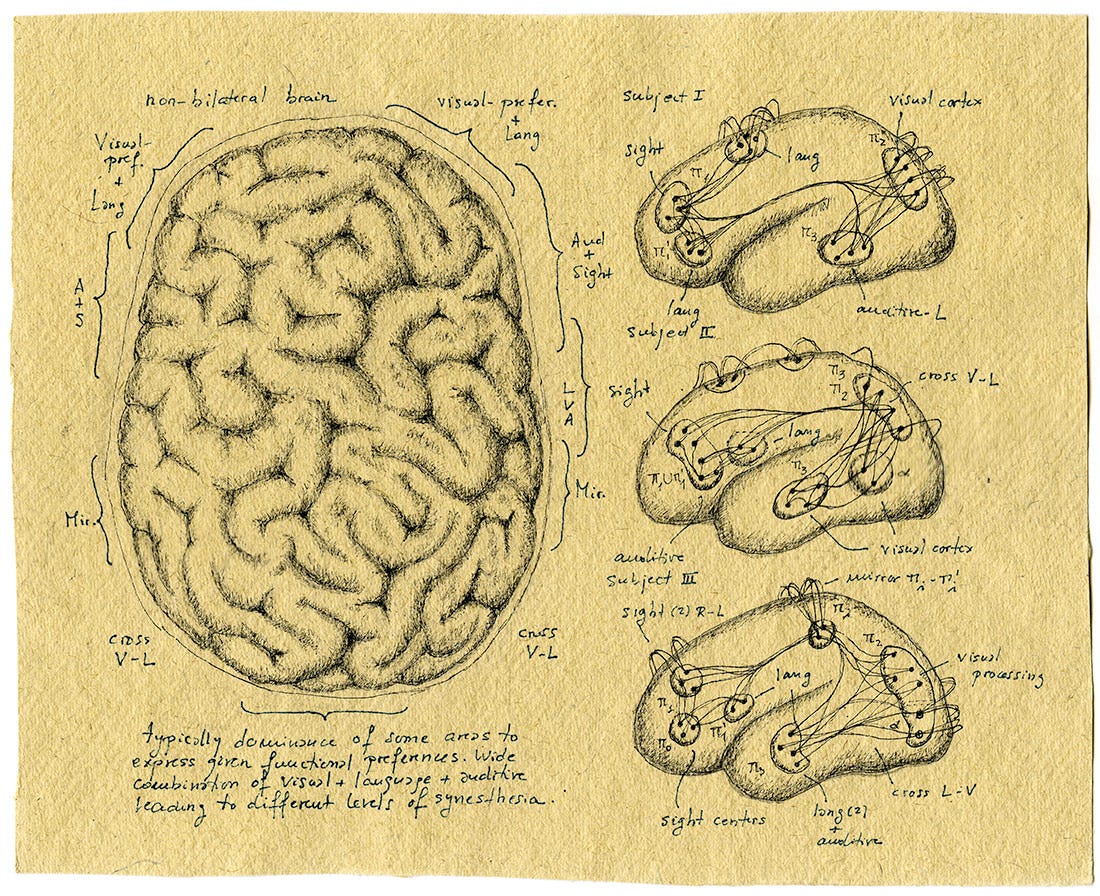 non-bilateral brain
visual-prefer.
+
Lang
Visual-
pref.
+
Lang
A
+
S
Aud
+
Sight
L
V
A
Mir.
Mir.
cross
V-L
cross
V-L
typically dominance of some areas to
express given functional preferences. Wide
combination of visual + language + auditive
leading to different levels of synesthesia.
Subject I
visual cortex
sight
lang
π₂
π₁
π₁'
π₃
lang
auditive-L
Subject II
sight
π₃'
π₂
cross V-L
lang
π₁∪π₁'
π₃
α
auditive
visual cortex
Subject III
mirror
sight (2) R-L
π₂
π₂
visual
processing
lang
π₁'
π₀
α
π₃
cross L-V
sight centers
lang(2)
+
auditive